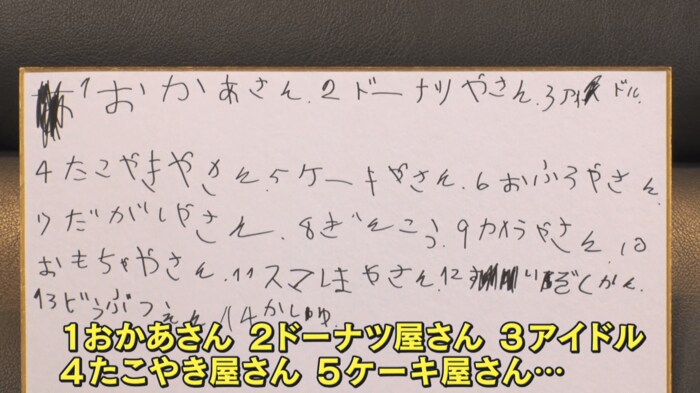 1おかあさん.2ドーナツやさん.3アイドル.
4たこやきやさん.5ケーキやさん.6おふろやさん.
7だがしやさん.8ぎんこう.9カメラやさん.10
おもちゃやさん.11スマホやさん.12すいぞくかん
13どうぶつえん.14かしゅ
1おかあさん 2ドーナツ屋さん 3アイドル
4たこやき屋さん 5ケーキ屋さん…